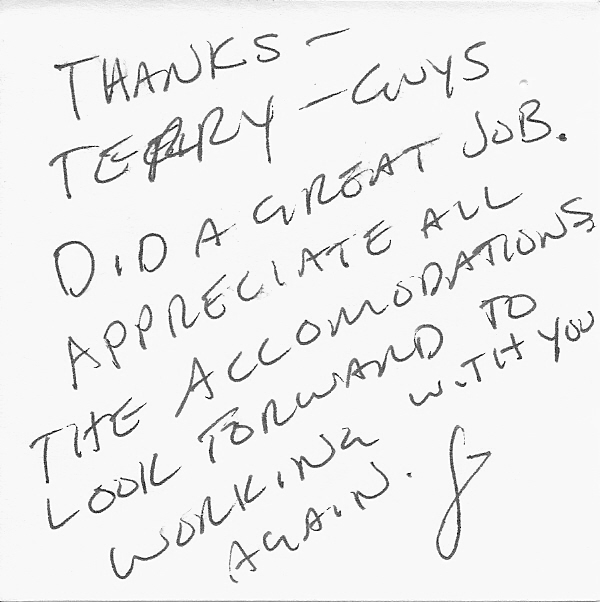 THANKS -
TERRY - GUYS
DID A GREAT JOB.
APPRECIATE ALL
THE ACCOMODATIONS
LOOK FORWARD TO
WORKING WITH YOU
AGAIN.